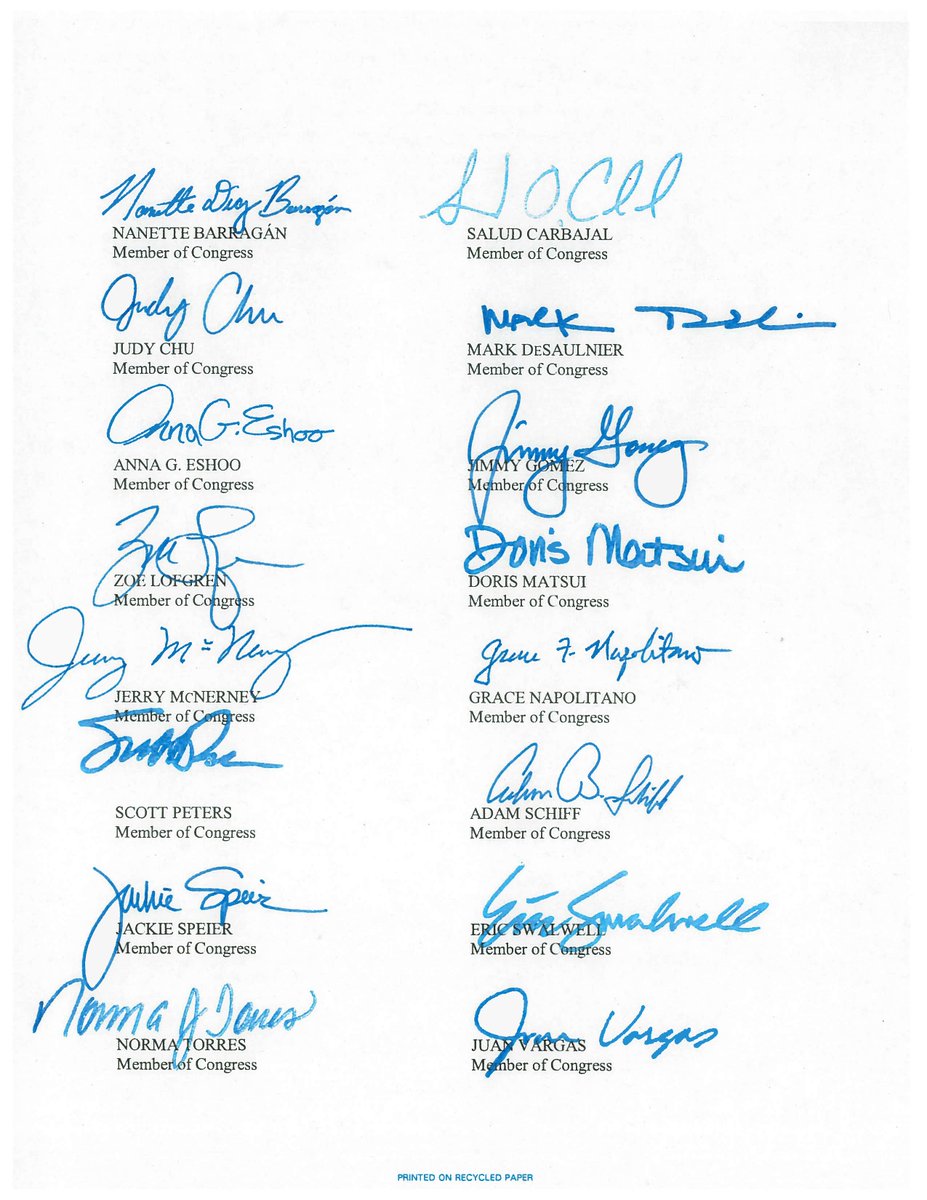 Nanette Diaz Barragán
NANETTE BARRAGÁN
Member of Congress
SALUD CARBAJAL
Member of Congress
Judy Chu
JUDY CHU
Member of Congress
Mark
MARK DESAULNIER
Member of Congress
Anna G. Eshoo
ANNA G. ESHOO
Member of Congress
Jimmy Gomez
JIMMY GOMEZ
Member of Congress
ZOE LOFGREN
Member of Congress
Doris Matsui
DORIS MATSUI
Member of Congress
Jerry McNerney
JERRY MCNERNEY
Member of Congress
Grace F. Napolitano
GRACE NAPOLITANO
Member of Congress
SCOTT PETERS
Member of Congress
Adam B. Schiff
ADAM SCHIFF
Member of Congress
Jackie Speier
JACKIE SPEIER
Member of Congress
Eric Swalwell
ERIC SWALWELL
Member of Congress
Norma J Torres
NORMA TORRES
Member of Congress
Juan Vargas
JUAN VARGAS
Member of Congress
PRINTED ON RECYCLED PAPER